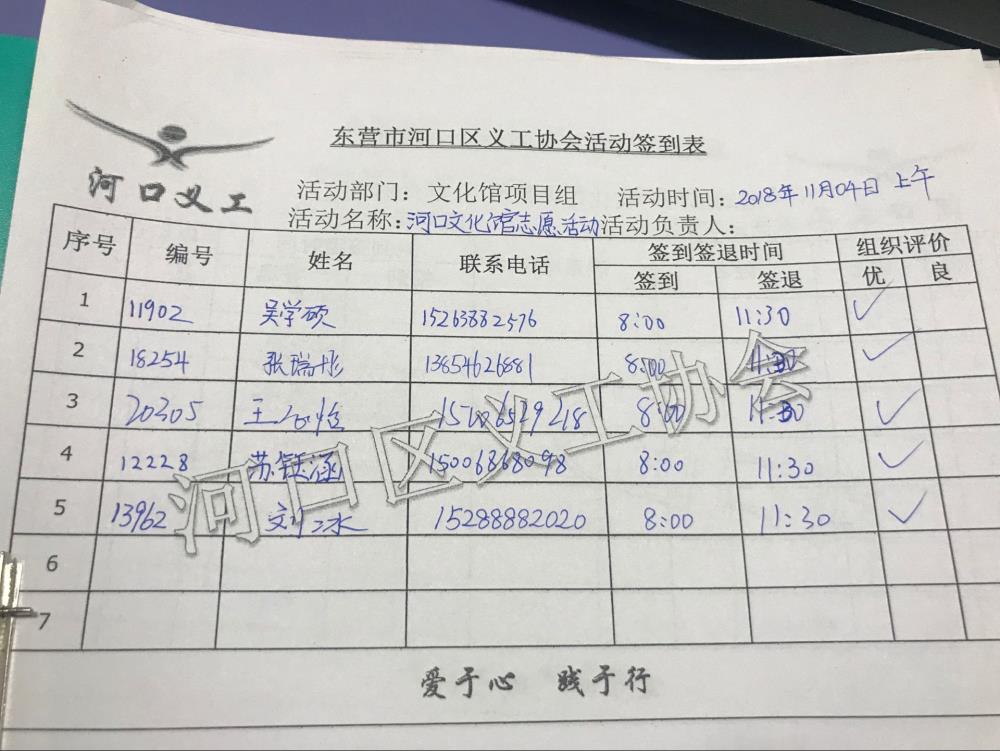 东营市河口区义工协会活动签到表
河口义工
活动部门：文化馆项目组 活动时间：2018年11月04日 上午
活动名称：河口文化馆志愿活动 活动负责人：
序号 编号 姓名 联系电话 签到签退时间 组织评价
签到 签退 优 良
1 11902 吴学硕 15263882576 8:00 11:30 ✓
2 18254 张瑞彤 13854626881 8:00 11:30 ✓
3 20305 王 怡 8:00 11:30 ✓
4 12228 苏钰涵 15006868098 8:00 11:30 ✓
5 13962 刘 冰 15288882020 8:00 11:30 ✓
6
7
河口区义工协会
爱于心 践于行